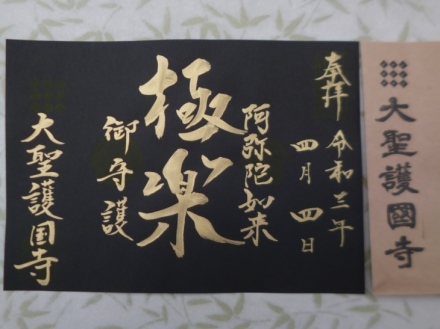 大聖護國寺
奉拝
令和三年
四月四日
阿弥陀如来
極楽
御守護
大聖護国寺